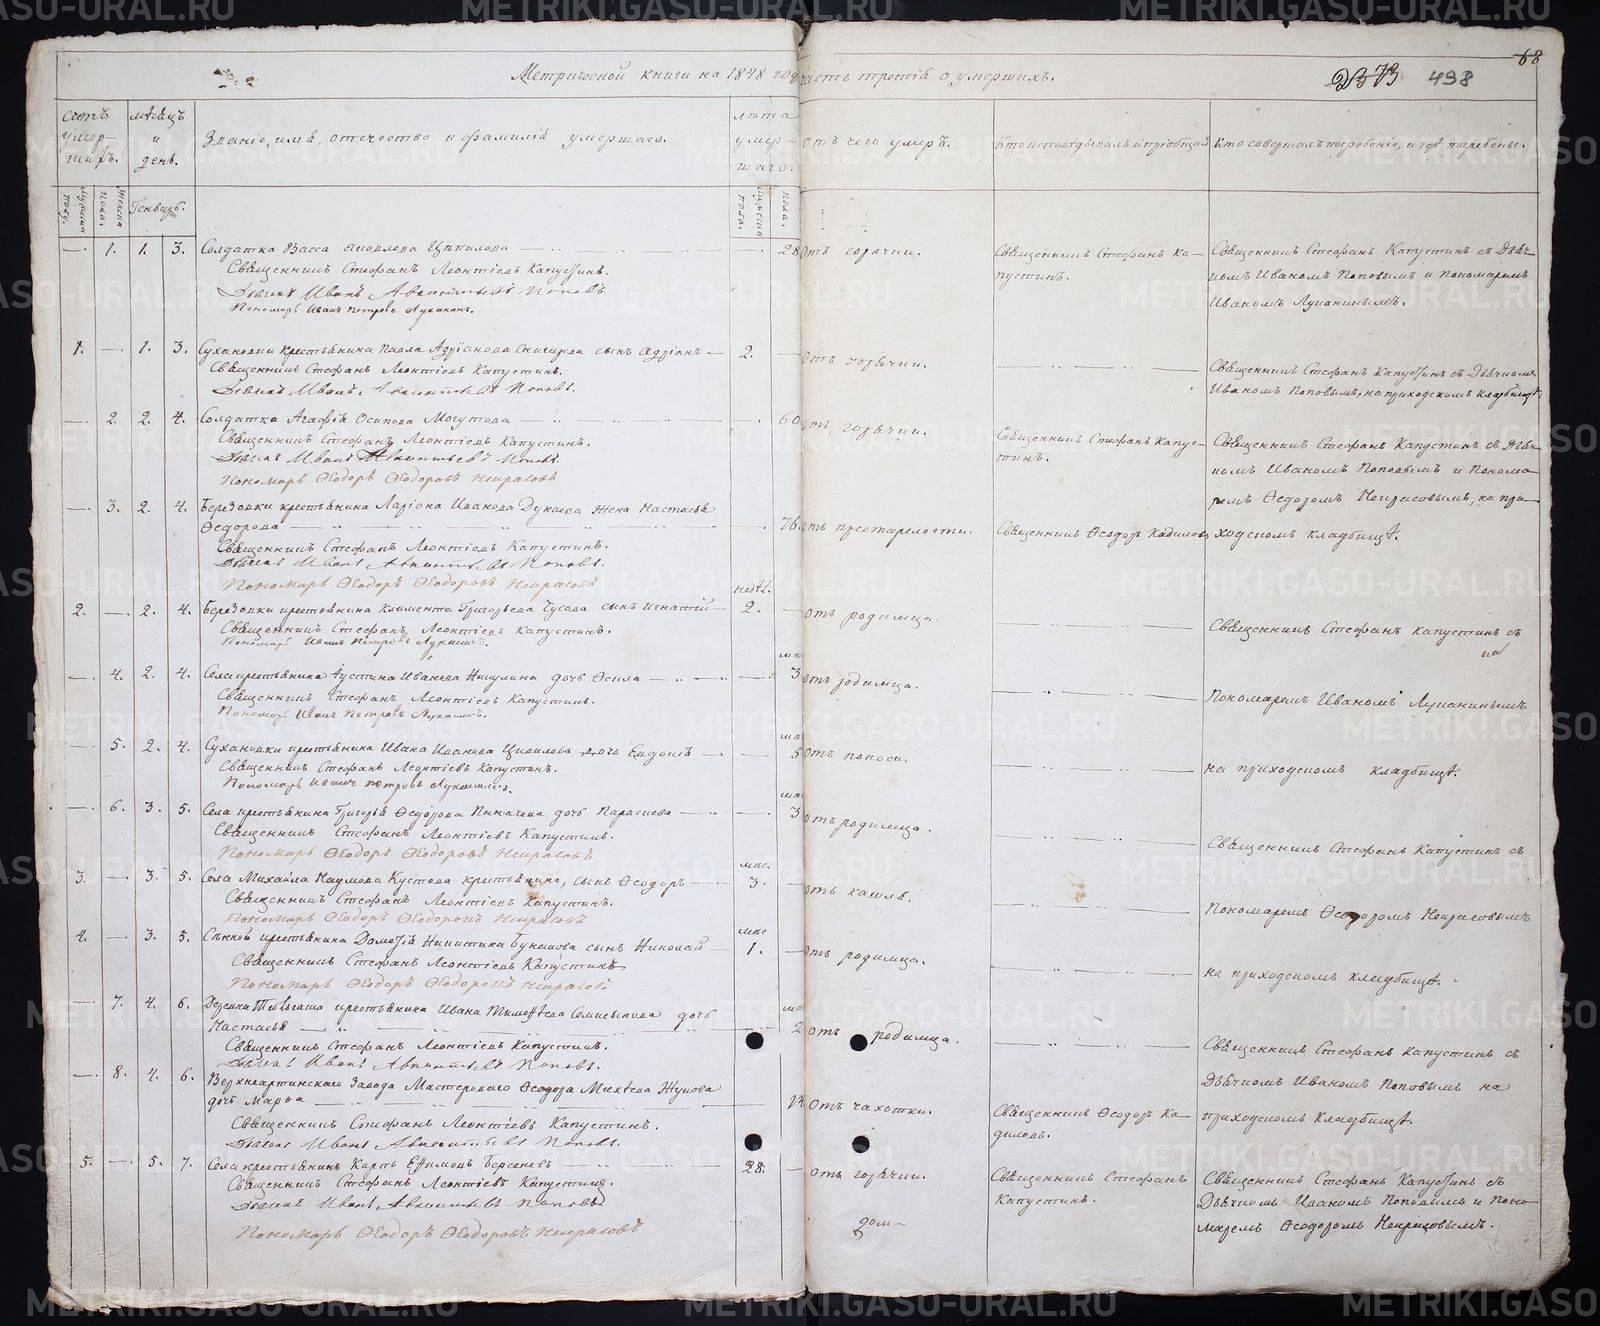 Метрической книги на 1848 год часть третія о умершихъ.
68
498
счетъ умер-шихъ.
мѣсяцъ и день.
Званіе, имя, отечество и фамилія умершаго.
лѣта умер-шаго.
отъ чего умеръ.
Кто исповѣдывалъ и пріобщалъ
Кто совершалъ погребеніе, и гдѣ погребены.
мужеска полу.
женска пола.
Генварь.
мужеска пола.
пола.
— 1. 1. 3. Солдатка Васса Яковлева Цѣпилова — 28
отъ горячки.
Священникъ Стефанъ Ка-
пустинъ.
Священникъ Стефанъ Капустинъ съ Дьяч-
комъ Иваномъ Поповымъ и пономаремъ
Иваномъ Луканинымъ.
Священникъ Стефанъ Леонтіевъ Капустинъ.
Дьячекъ Иванъ Авксентьевъ Поповъ
Пономарь Иванъ Петровъ Луканинъ.
1. — 1. 3. Сухановки крестьянина Павла Адріанова Снигирева сынъ Адріанъ — 2. —
отъ горячки.
Священникъ Стефанъ Капустинъ съ Дьячкомъ
Иваномъ Поповымъ, на приходскомъ кладбищѣ
Священникъ Стефанъ Леонтіевъ Капустинъ.
Дьячекъ Иванъ Авксентьевъ Поповъ.
— 2. 2. 4. Солдатка Агафія Осипова Могутова 60
отъ горячки.
Священникъ Стефанъ Капус-
тинъ.
Священникъ Стефанъ Капустинъ съ Дьяч-
комъ Иваномъ Поповымъ и Понома-
ремъ Ѳедоромъ Некрасовымъ, на при-
Священникъ Стефанъ Леонтіевъ Капустинъ.
Дьячекъ Иванъ Авксентьевъ Поповъ.
Пономарь Ѳеодоръ Ѳеодоровъ Некрасовъ
— 3. 2. 4. Березовки крестьянина Ларіона Иванова Дунаева жена Настасья
Ѳедорова — 76.
отъ престарелости.
Священникъ Ѳеодоръ Кадиловъ
ходскомъ кладбищѣ.
Священникъ Стефанъ Леонтіевъ Капустинъ.
Дьячекъ Иванъ Авксентьевъ Поповъ.
Пономарь Ѳеодоръ Ѳеодоровъ Некрасовъ
недѣл.
2. — 2. 4. Березовки крестьянина Климента Григорьева Чусова сынъ Игнатій — 2. —
отъ родимца.
Священникъ Стефанъ Капустинъ съ
Священникъ Стефанъ Леонтіевъ Капустинъ.
Пономарь Иванъ Петровъ Луканинъ.
— 4. 2. 4. Села крестьянина Іустина Иванова Никулина дочь Ѳекла — 3
отъ родимца.
Пономаремъ Иваномъ Луканинымъ
Священникъ Стефанъ Леонтіевъ Капустинъ.
Пономарь Иванъ Петровъ Луканинъ.
— 5. 2. 4. Сухановки крестьянина Ивана Иванова Цивилева дочь Евдокія — 5
отъ поноса.
на приходскомъ кладбищѣ.
Священникъ Стефанъ Леонтіевъ Капустинъ.
Пономарь Иванъ Петровъ Луканинъ.
— 6. 3. 5. Села крестьянина Григорья Ѳедорова Пиначева дочь Параскева — 3
отъ родимца.
Священникъ Стефанъ Капустинъ съ
Священникъ Стефанъ Леонтіевъ Капустинъ.
Пономарь Ѳеодоръ Ѳеодоровъ Некрасовъ
мѣс.
3. — 3. 5. Села Михайла Наумова Кустова крестьянина, сынъ Ѳеодоръ — 3. —
отъ кашля.
Пономаремъ Ѳеодоромъ Некрасовымъ
Священникъ Стефанъ Леонтіевъ Капустинъ.
Пономарь Ѳеодоръ Ѳеодоровъ Некрасовъ
мѣс
4. — 3. 5. крестьянина Никитина Бунакова сынъ Николай — 1. —
отъ родимца.
на приходскомъ кладбищѣ.
Священникъ Стефанъ Леонтіевъ Капустинъ
Пономарь Ѳеодоръ Ѳеодоровъ Некрасовъ
— 7. 4. 6. Деревни крестьянина Ивана Тимоѳеева дочь
Настасья — 2
отъ родимца.
Священникъ Стефанъ Капустинъ съ
Священникъ Стефанъ Леонтіевъ Капустинъ.
Дьячекъ Иванъ Авксентьевъ Поповъ.
Дьячкомъ Иваномъ Поповымъ на
— 8. 4. 6. Верхнеартинскаго Завода Мастероваго Ѳеодора Михѣева Жукова
дочь Марѳа — 14
отъ чахотки.
Священникъ Ѳеодоръ Ка-
диловъ.
приходскомъ кладбищѣ.
Священникъ Стефанъ Леонтіевъ Капустинъ.
Дьячекъ Иванъ Авксентьевъ Поповъ.
5. — 5. 7. Села крестьянинъ Карпъ Ефимовъ Берсеневъ — 28. —
отъ горячки.
Священникъ Стефанъ
Капустинъ.
Священникъ Стефанъ Капустинъ съ
Дьячкомъ Иваномъ Поповымъ и Поно-
маремъ Ѳеодоромъ Некрасовымъ.
Священникъ Стефанъ Леонтіевъ Капустинъ.
Дьячекъ Иванъ Авксентьевъ Поповъ
Пономарь Ѳеодоръ Ѳеодоровъ Некрасовъ
METRIKI.GASO-URAL.RU